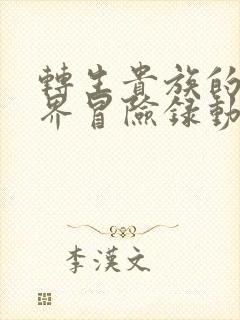 轉生貴族的
界冒險録動
李漢文